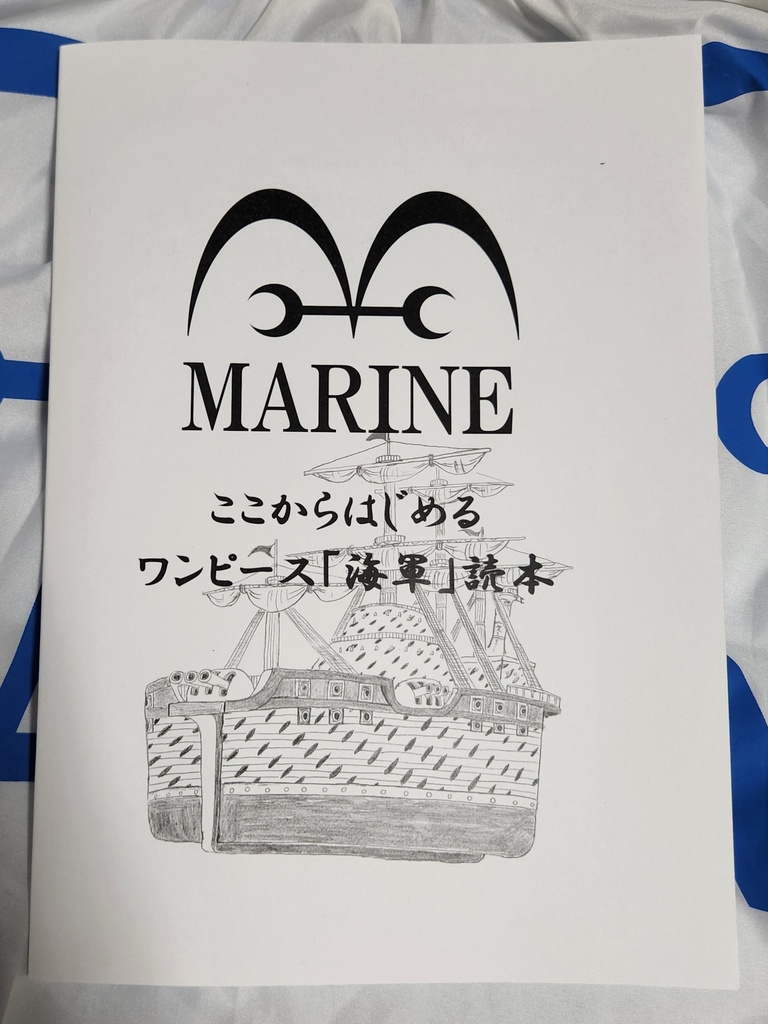 MARINE
ここからはじめる
ワンピース「海軍」読本